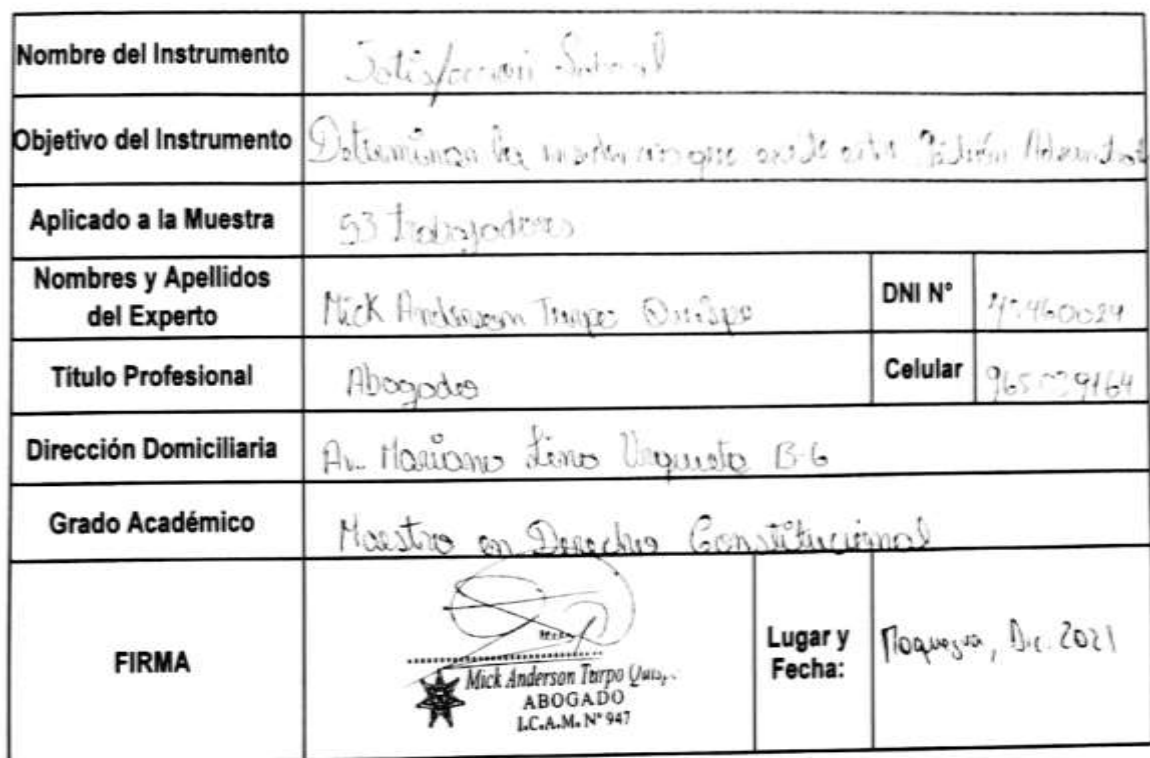 Nombre del Instrumento
Satisfacción Laboral
Objetivo del Instrumento
Determinar la que existe entre Gestión
Aplicado a la Muestra
53 trabajadores
Nombres y Apellidos
del Experto
Mick Anderson Turpo Quispe
DNI N°
Título Profesional
Abogado
Celular
Dirección Domiciliaria
Av. Mariano Lino Urquieta B-6
Grado Académico
Maestro en Derecho Constitucional
FIRMA
Mick Anderson Turpo
ABOGADO
I.C.A.M. N° 947
Lugar y
Fecha:
Moquegua, Dic. 2021